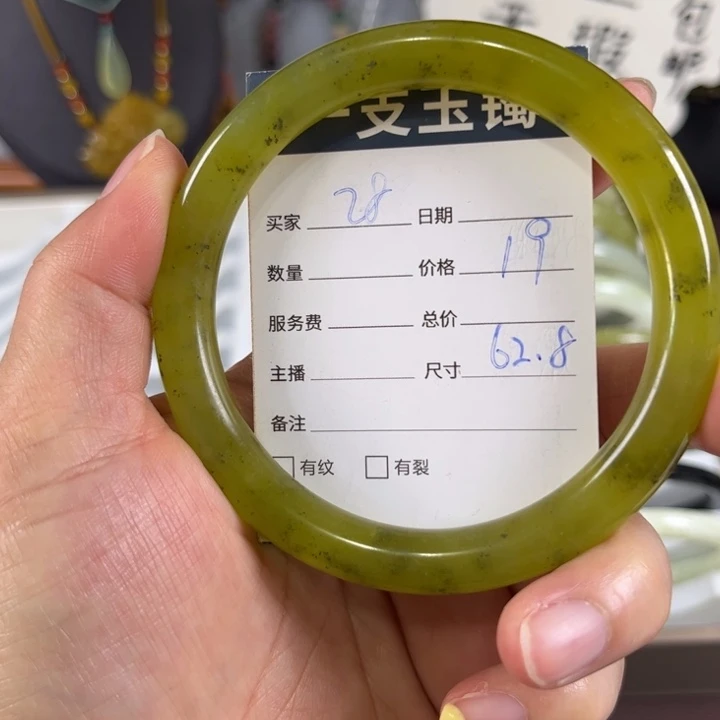 一支玉镯
买家 28 日期
数量 价格 19
服务费 总价
主播 尺寸 62.8
备注
有纹 有裂